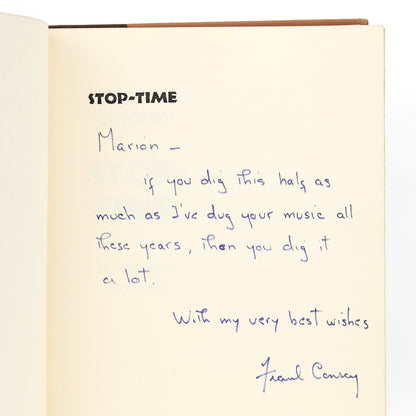 STOP-TIME
Marion –
if you dig this half as
much as I've dug your music all
these years, then you dig it
a lot.
With my very best wishes
Frank Conroy